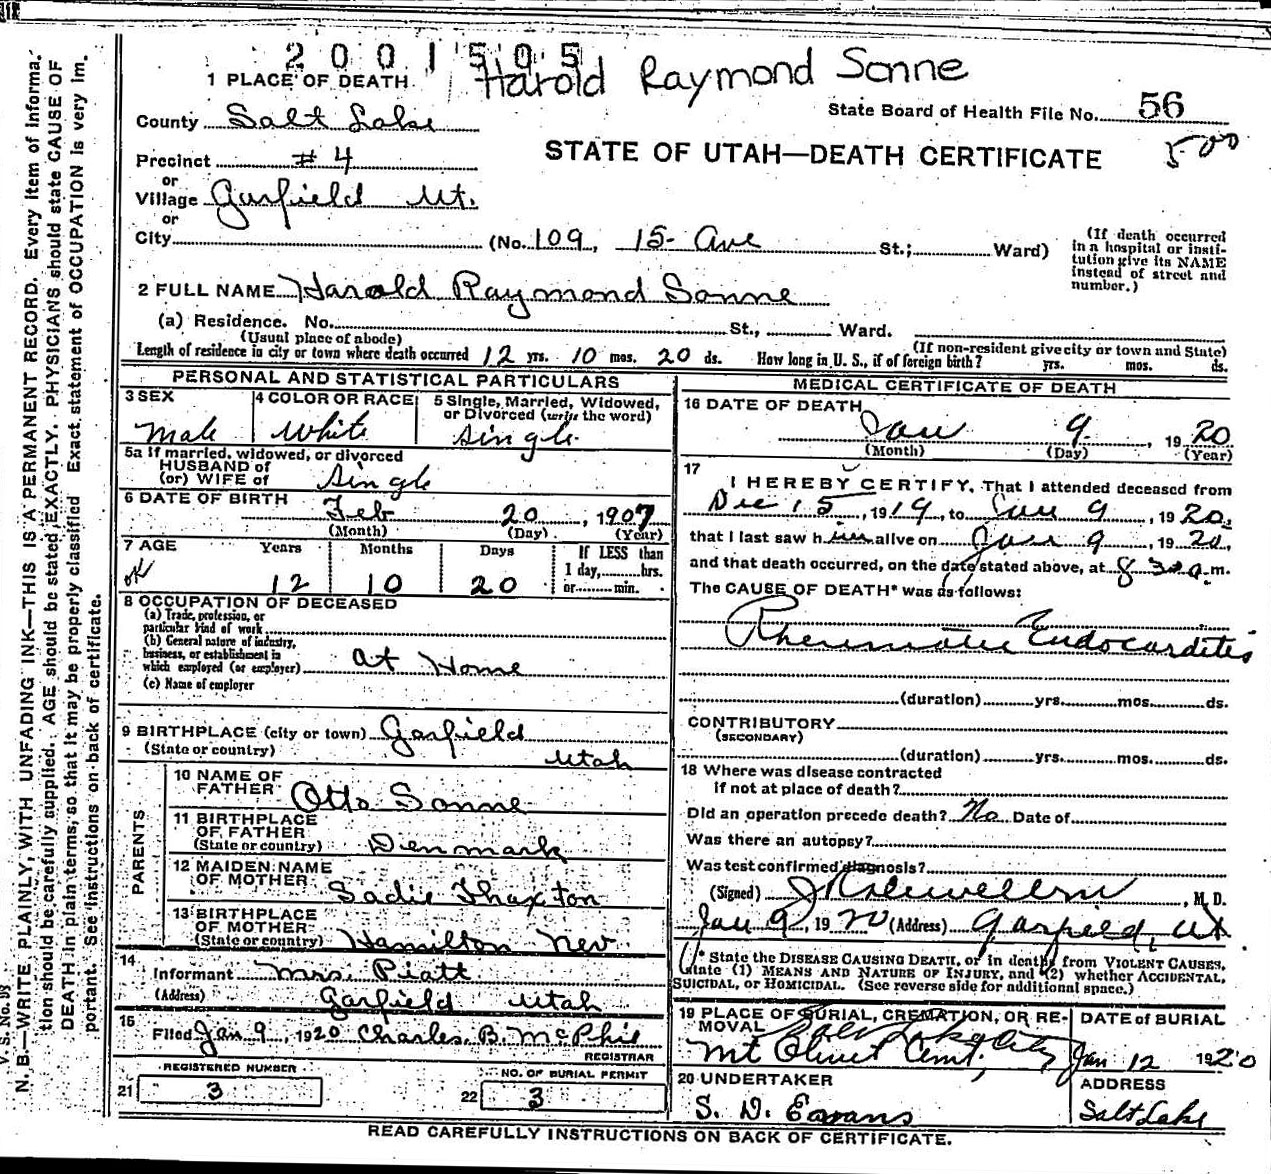 2001505
Harold Raymond Sonne
1 PLACE OF DEATH
State Board of Health File No. 56
County Salt Lake
500
STATE OF UTAH—DEATH CERTIFICATE
Precinct #4
or
Village Garfield Ut.
or
City (No. 109, 15- Ave St.; Ward)
(If death occurred
in a hospital or insti-
tution give its NAME
instead of street and
number.)
2 FULL NAME Harold Raymond Sonne
(a) Residence. No. St., Ward.
(Usual place of abode) (If non-resident give city or town and State)
Length of residence in city or town where death occurred 12 yrs. 10 mos. 20 ds. How long in U. S., if of foreign birth? yrs. mos. ds.
PERSONAL AND STATISTICAL PARTICULARS
3 SEX 4 COLOR OR RACE 5 Single, Married, Widowed,
or Divorced (write the word)
Male White Single
5a If married, widowed, or divorced
HUSBAND of
(or) WIFE of Single
6 DATE OF BIRTH
Feb 20, 1907
(Month) (Day) (Year)
7 AGE Years Months Days If LESS than
1 day, hrs.
or min.
OK 12 10 20
8 OCCUPATION OF DECEASED
(a) Trade, profession, or
particular kind of work
(b) General nature of industry,
business, or establishment in
which employed (or employer) At Home
(c) Name of employer
9 BIRTHPLACE (city or town) Garfield
(State or country) Utah
PARENTS
10 NAME OF
FATHER Otto Sonne
11 BIRTHPLACE
OF FATHER
(State or country) Denmark
12 MAIDEN NAME
OF MOTHER Sadie Thaxton
13 BIRTHPLACE
OF MOTHER
(State or country) Hamilton Nev
14
Informant Mrs. Piatt
(Address) Garfield Utah
15
Filed Jan 9, 1920 Charles B. McPhie
REGISTRAR
REGISTERED NUMBER NO. OF BURIAL PERMIT
21 3 22 3
MEDICAL CERTIFICATE OF DEATH
16 DATE OF DEATH
Jan 9, 1920
(Month) (Day) (Year)
17
I HEREBY CERTIFY, That I attended deceased from
Dec 15, 1919, to Jan 9, 1920,
that I last saw him alive on Jan 9, 1920,
and that death occurred, on the date stated above, at 8 30 a.m.
The CAUSE OF DEATH* was as follows:
Rheumatic Endocarditis
(duration) yrs. mos. ds.
CONTRIBUTORY
(SECONDARY)
(duration) yrs. mos. ds.
18 Where was disease contracted
if not at place of death?
Did an operation precede death? No Date of
Was there an autopsy?
Was test confirmed diagnosis?
(Signed) M. D.
Jan 9, 1920 (Address) Garfield, Ut
* State the DISEASE CAUSING DEATH, or in deaths from VIOLENT CAUSES,
state (1) MEANS AND NATURE OF INJURY, and (2) whether ACCIDENTAL,
SUICIDAL, or HOMICIDAL. (See reverse side for additional space.)
19 PLACE OF BURIAL, CREMATION, OR RE-
MOVAL Salt Lake City
Mt Olivet Cemt.,
DATE of BURIAL
Jan 12 1920
20 UNDERTAKER
S. D. Evans
ADDRESS
Salt Lake
READ CAREFULLY INSTRUCTIONS ON BACK OF CERTIFICATE.
V. S. No. 98
N. B.—WRITE PLAINLY, WITH UNFADING INK—THIS IS A PERMANENT RECORD. Every item of informa-
tion should be carefully supplied. AGE should be stated EXACTLY. PHYSICIANS should state CAUSE OF
DEATH in plain terms, so that it may be properly classified. Exact statement of OCCUPATION is very im-
portant. See instructions on back of certificate.